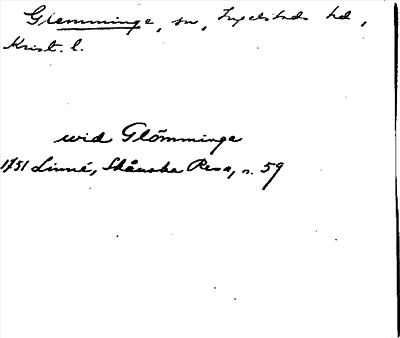 Glemminge, sn, Ingelstads hd,
Krist. l.
wid Glömminge
1751 Linné, Skånska Resa, s. 59